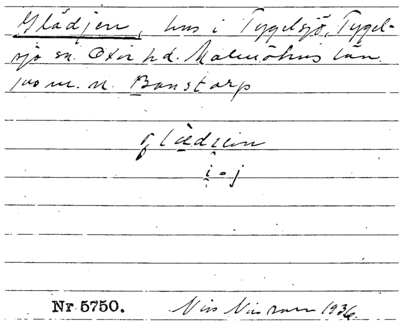 Glädjen, hus i Tygelsjö, Tygel-
sjö sn. Oxie hd. Malmöhus län.
100 m. n. Bonstorp
i = j
Nr 5750.
Nils 1936.